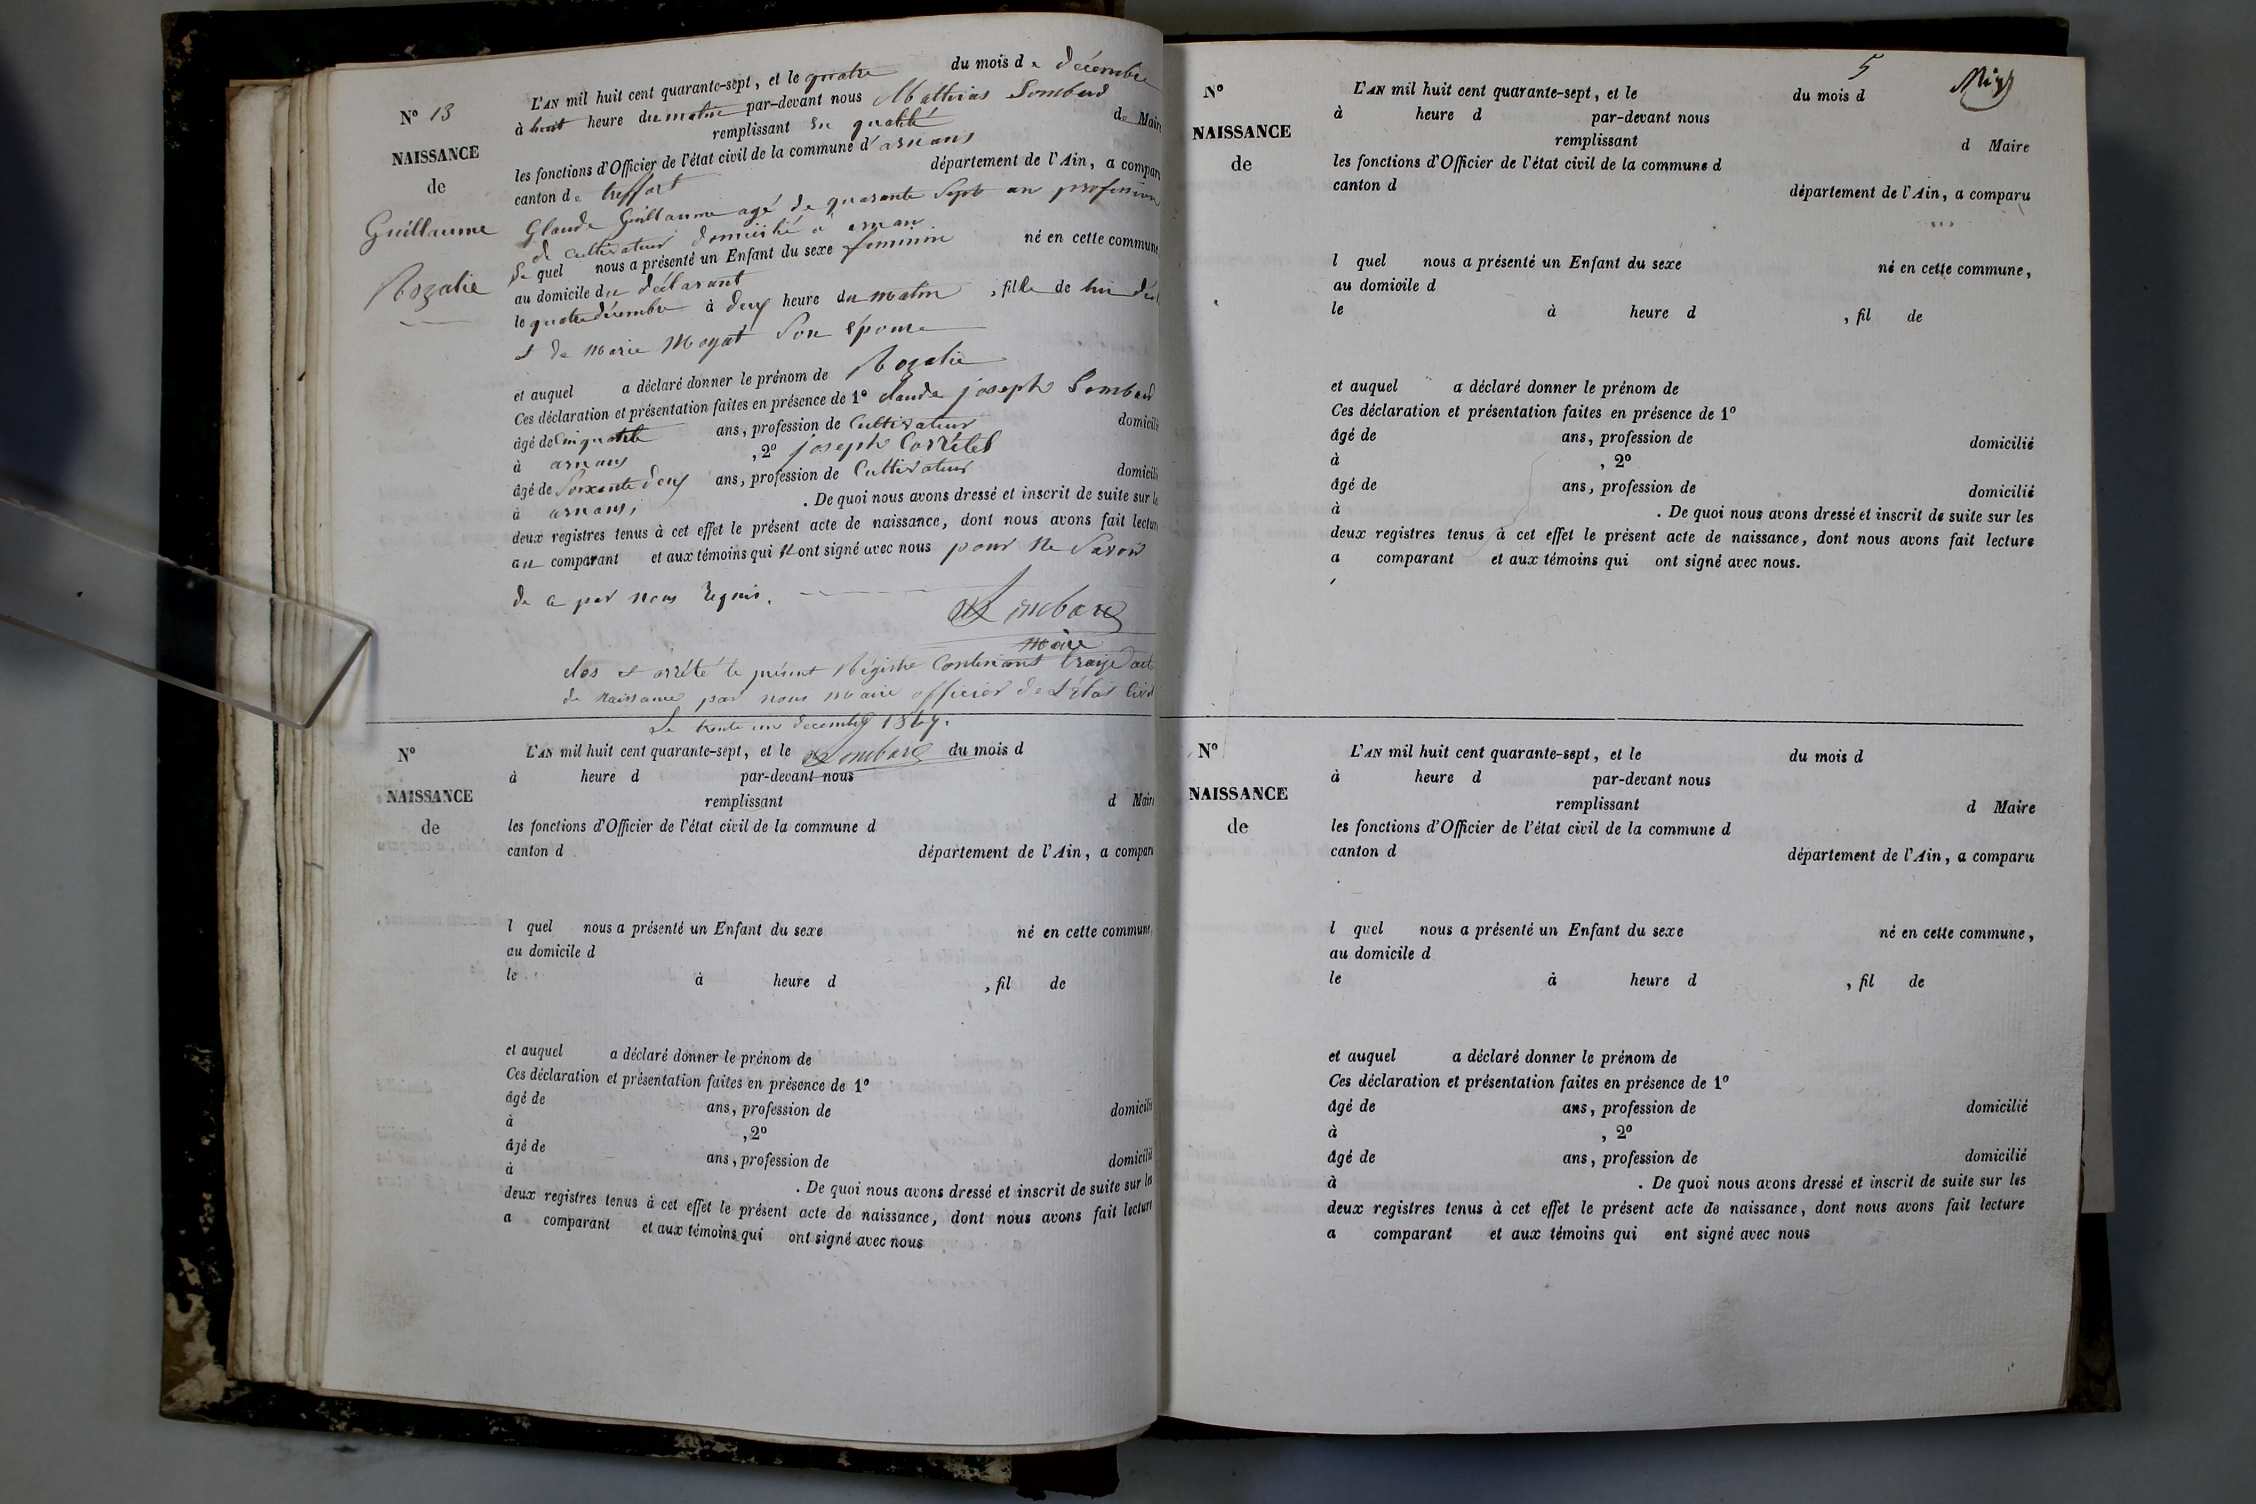 N° 13
NAISSANCE
de
Guillaume
Rozalie
L'AN mil huit cent quarante-sept, et le quatre du mois de décembre
à huit heure du matin par-devant nous Mathias Lombard
remplissant en qualité de Maire
les fonctions d'Officier de l'état civil de la commune d'arnans
canton de treffort département de l'Ain, a comparu
Glaude Guillaume agé de quarante Sept an profession
de cultivateur domicilié a arnan
Le quel nous a présenté un Enfant du sexe feminin né en cette commune
au domicile du déclarant
le quatre décembre à deux heure du matin, fille de lui décl
et de marie Moyat Son épouse
et auquel a déclaré donner le prénom de Rozalie
Ces déclaration et présentation faites en présence de 1° claude joseph Lombard
âgé de ans, profession de Cultivateur domicilié
à arnans, 2° joseph
âgé de Soixante deux ans, profession de Cultivateur domicilié
à arnans, . De quoi nous avons dressé et inscrit de suite sur le
deux registres tenus à cet effet le présent acte de naissance, dont nous avons fait lecture
au comparant et aux témoins qui n ont signé avec nous pour ne Savoir
de ce par nous Requis.
Lombard
maire
clos et arrété le présent Régistre Contenant traize act
de naissance par nous maire officier de L'état Civil
Le trente un decembre 1847.
Lombard
N°
NAISSANCE
de
L'AN mil huit cent quarante-sept, et le du mois d
à heure d par-devant nous
remplissant d Maire
les fonctions d'Officier de l'état civil de la commune d
canton d département de l'Ain, a comparu
l quel nous a présenté un Enfant du sexe né en cette commune,
au domicile d
le à heure d , fil de
et auquel a déclaré donner le prénom de
Ces déclaration et présentation faites en présence de 1°
âgé de ans, profession de domicilié
à , 2°
âgé de ans, profession de domicilié
à . De quoi nous avons dressé et inscrit de suite sur les
deux registres tenus à cet effet le présent acte de naissance, dont nous avons fait lecture
a comparant et aux témoins qui ont signé avec nous
5
N°
NAISSANCE
de
L'AN mil huit cent quarante-sept, et le du mois d
à heure d par-devant nous
remplissant d Maire
les fonctions d'Officier de l'état civil de la commune d
canton d département de l'Ain, a comparu
l quel nous a présenté un Enfant du sexe né en cette commune,
au domicile d
le à heure d , fil de
et auquel a déclaré donner le prénom de
Ces déclaration et présentation faites en présence de 1°
âgé de ans, profession de domicilié
à , 2°
âgé de ans, profession de domicilié
à . De quoi nous avons dressé et inscrit de suite sur les
deux registres tenus à cet effet le présent acte de naissance, dont nous avons fait lecture
a comparant et aux témoins qui ont signé avec nous.
N°
NAISSANCE
de
L'AN mil huit cent quarante-sept, et le du mois d
à heure d par-devant nous
remplissant d Maire
les fonctions d'Officier de l'état civil de la commune d
canton d département de l'Ain, a comparu
l quel nous a présenté un Enfant du sexe né en cette commune,
au domicile d
le à heure d , fil de
et auquel a déclaré donner le prénom de
Ces déclaration et présentation faites en présence de 1°
âgé de ans, profession de domicilié
à , 2°
âgé de ans, profession de domicilié
à . De quoi nous avons dressé et inscrit de suite sur les
deux registres tenus à cet effet le présent acte de naissance, dont nous avons fait lecture
a comparant et aux témoins qui ont signé avec nous